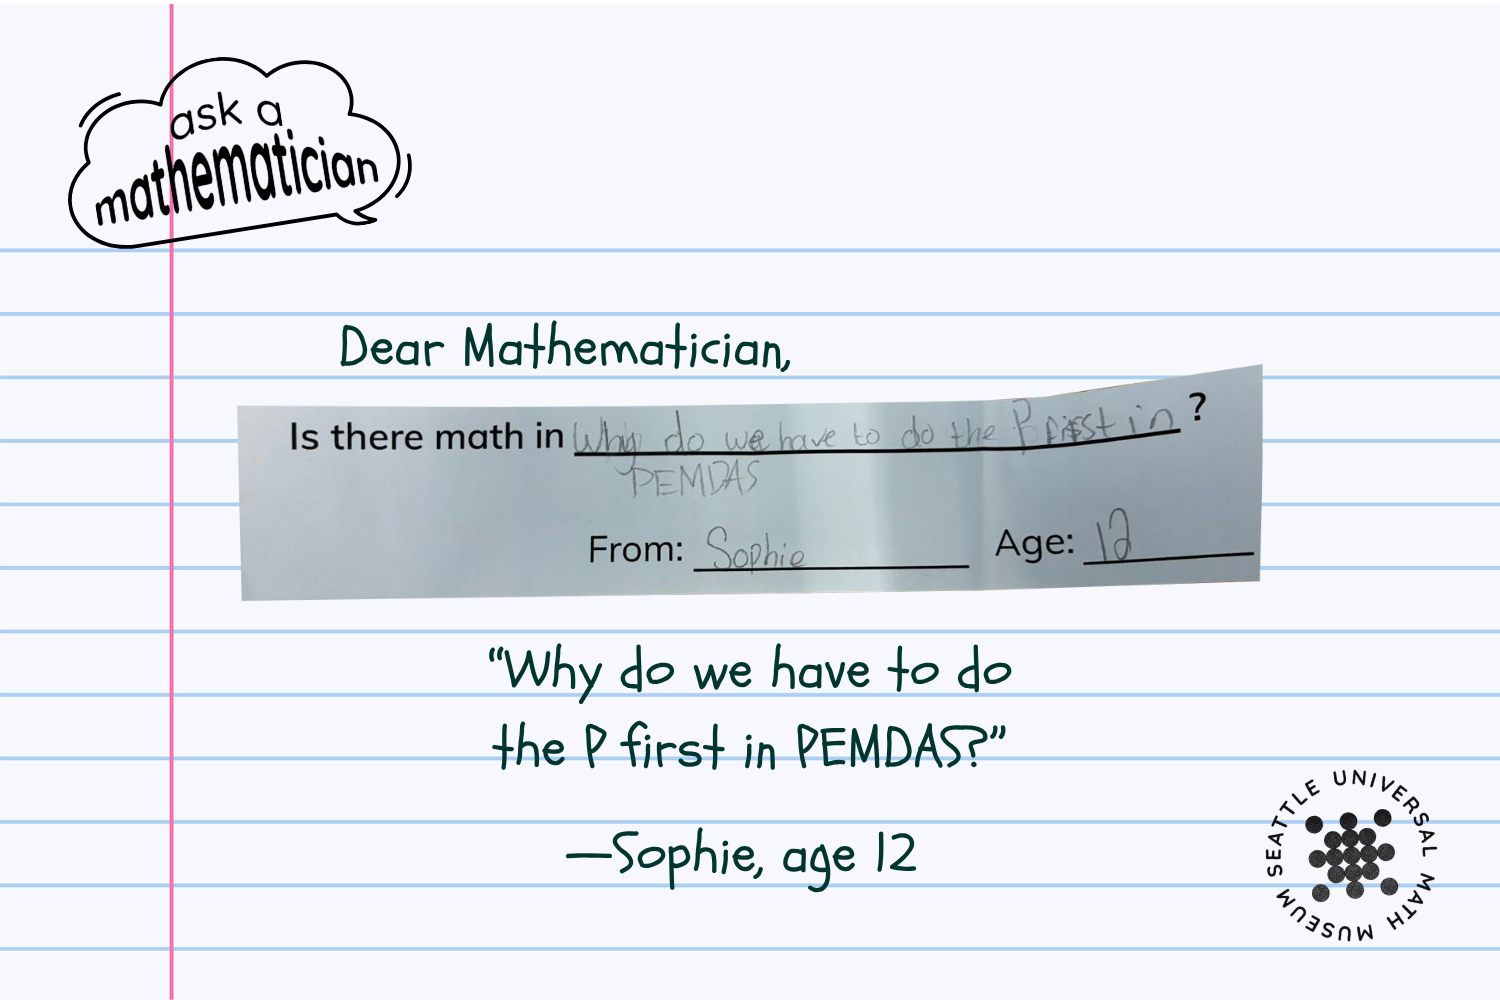 ask a
mathematician
Dear Mathematician,
Is there math in Why do we have to do the P first in ?
PEMDAS
From: Sophie Age: 12
“Why do we have to do
the P first in PEMDAS?”
—Sophie, age 12
SEATTLE UNIVERSAL MATH MUSEUM